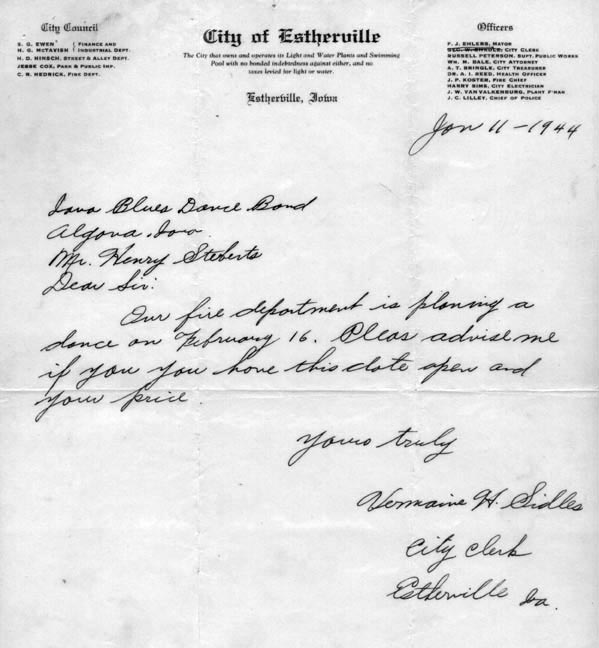 City Council
S. G. EWEN
H. G. McTAVISH
FINANCE AND
INDUSTRIAL DEPT.
H. D. HINSCH, STREET & ALLEY DEPT.
JESSE COX, PARK & PUBLIC IMP.
C. R. HEDRICK, FIRE DEPT.
City of Estherville
The City that owns and operates its Light and Water Plants and Swimming
Pool with no bonded indebtedness against either, and no
taxes levied for light or water.
Estherville, Iowa
Officers
F. J. EHLERS, MAYOR
CITY CLERK
RUSSELL PETERSON, SUPT. PUBLIC WORKS
WM. M. DALE, CITY ATTORNEY
A. T. BRINGLE, CITY TREASURER
DR. A. I. REED, HEALTH OFFICER
J. P. KOSTER, FIRE CHIEF
HARRY SIMS, CITY ELECTRICIAN
J. W. VAN VALKENBURG, PLANT F'MAN
J. C. LILLEY, CHIEF OF POLICE
Jan 11-1944
Blues Dance Band
Algona, Iowa.
Mr. Henry Steberts
Dear Sir:
Our fire department is planing a
dance on February 16. Pleas advise me
if you you have this date open and
your price.
Yours truly
Vermaine H. Sidles
City Clerk
Estherville Ia.